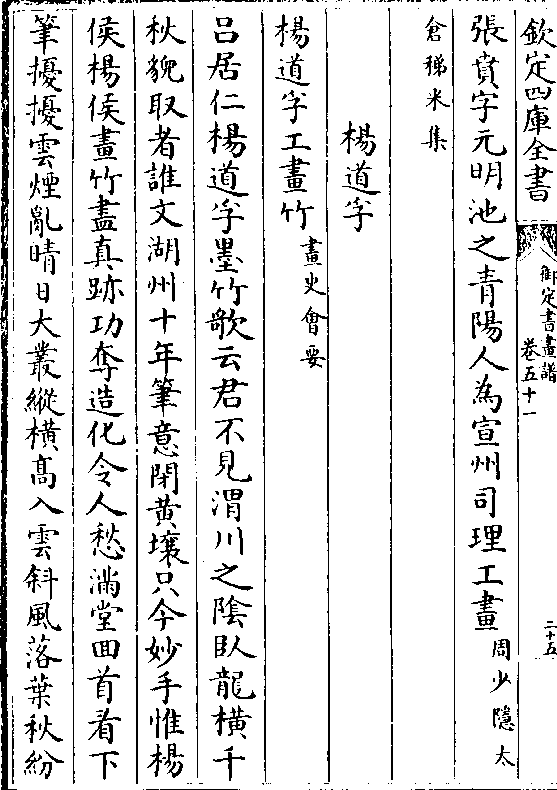 欽定四庫全書
御定書畫譜
卷五十一
二十五
張賁字元明池之青陽人為宣州司理工畫周少隱太
倉稊米集
楊道孚
楊道孚工畫竹畫史會要
呂居仁楊道孚墨竹歌云君不見渭川之陰臥龍橫千
秋貌取者誰文湖州十年筆意閉黄壤只今妙手惟楊
侯楊侯畫竹盡真跡功奪造化令人愁滿堂囬首看下
筆擾擾雲煙亂晴日大叢縱橫髙入雲斜風落葉秋紛